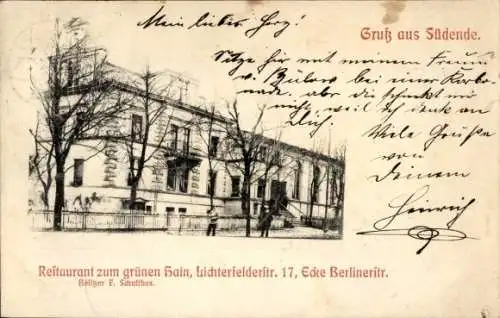 Mein liebes Herz!
Gruß aus Südende.
Sitze hier mit meinem Freund
v. Bülow bei einer Karbo-
nade. aber die schmeckt mir
nicht weil ich denk an
Dich!
Viele Grüße
von
Deinem
Heinrich
Restaurant zum grünen Hain, Lichterfelderstr. 17, Ecke Berlinerstr.
Besitzer F. Schultheu.